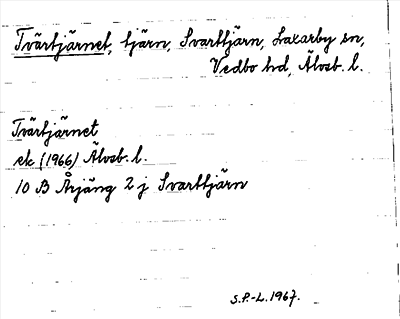 Tvärtjärnet, tjärn, Svarttjärn, Laxarby sn,
Vedbo hd, Älvsb. l.
Tvärtjärnet
ek (1966) Älvsb. l.
10 B Årjäng 2 j Svarttjärn
S.P.-L. 1967.